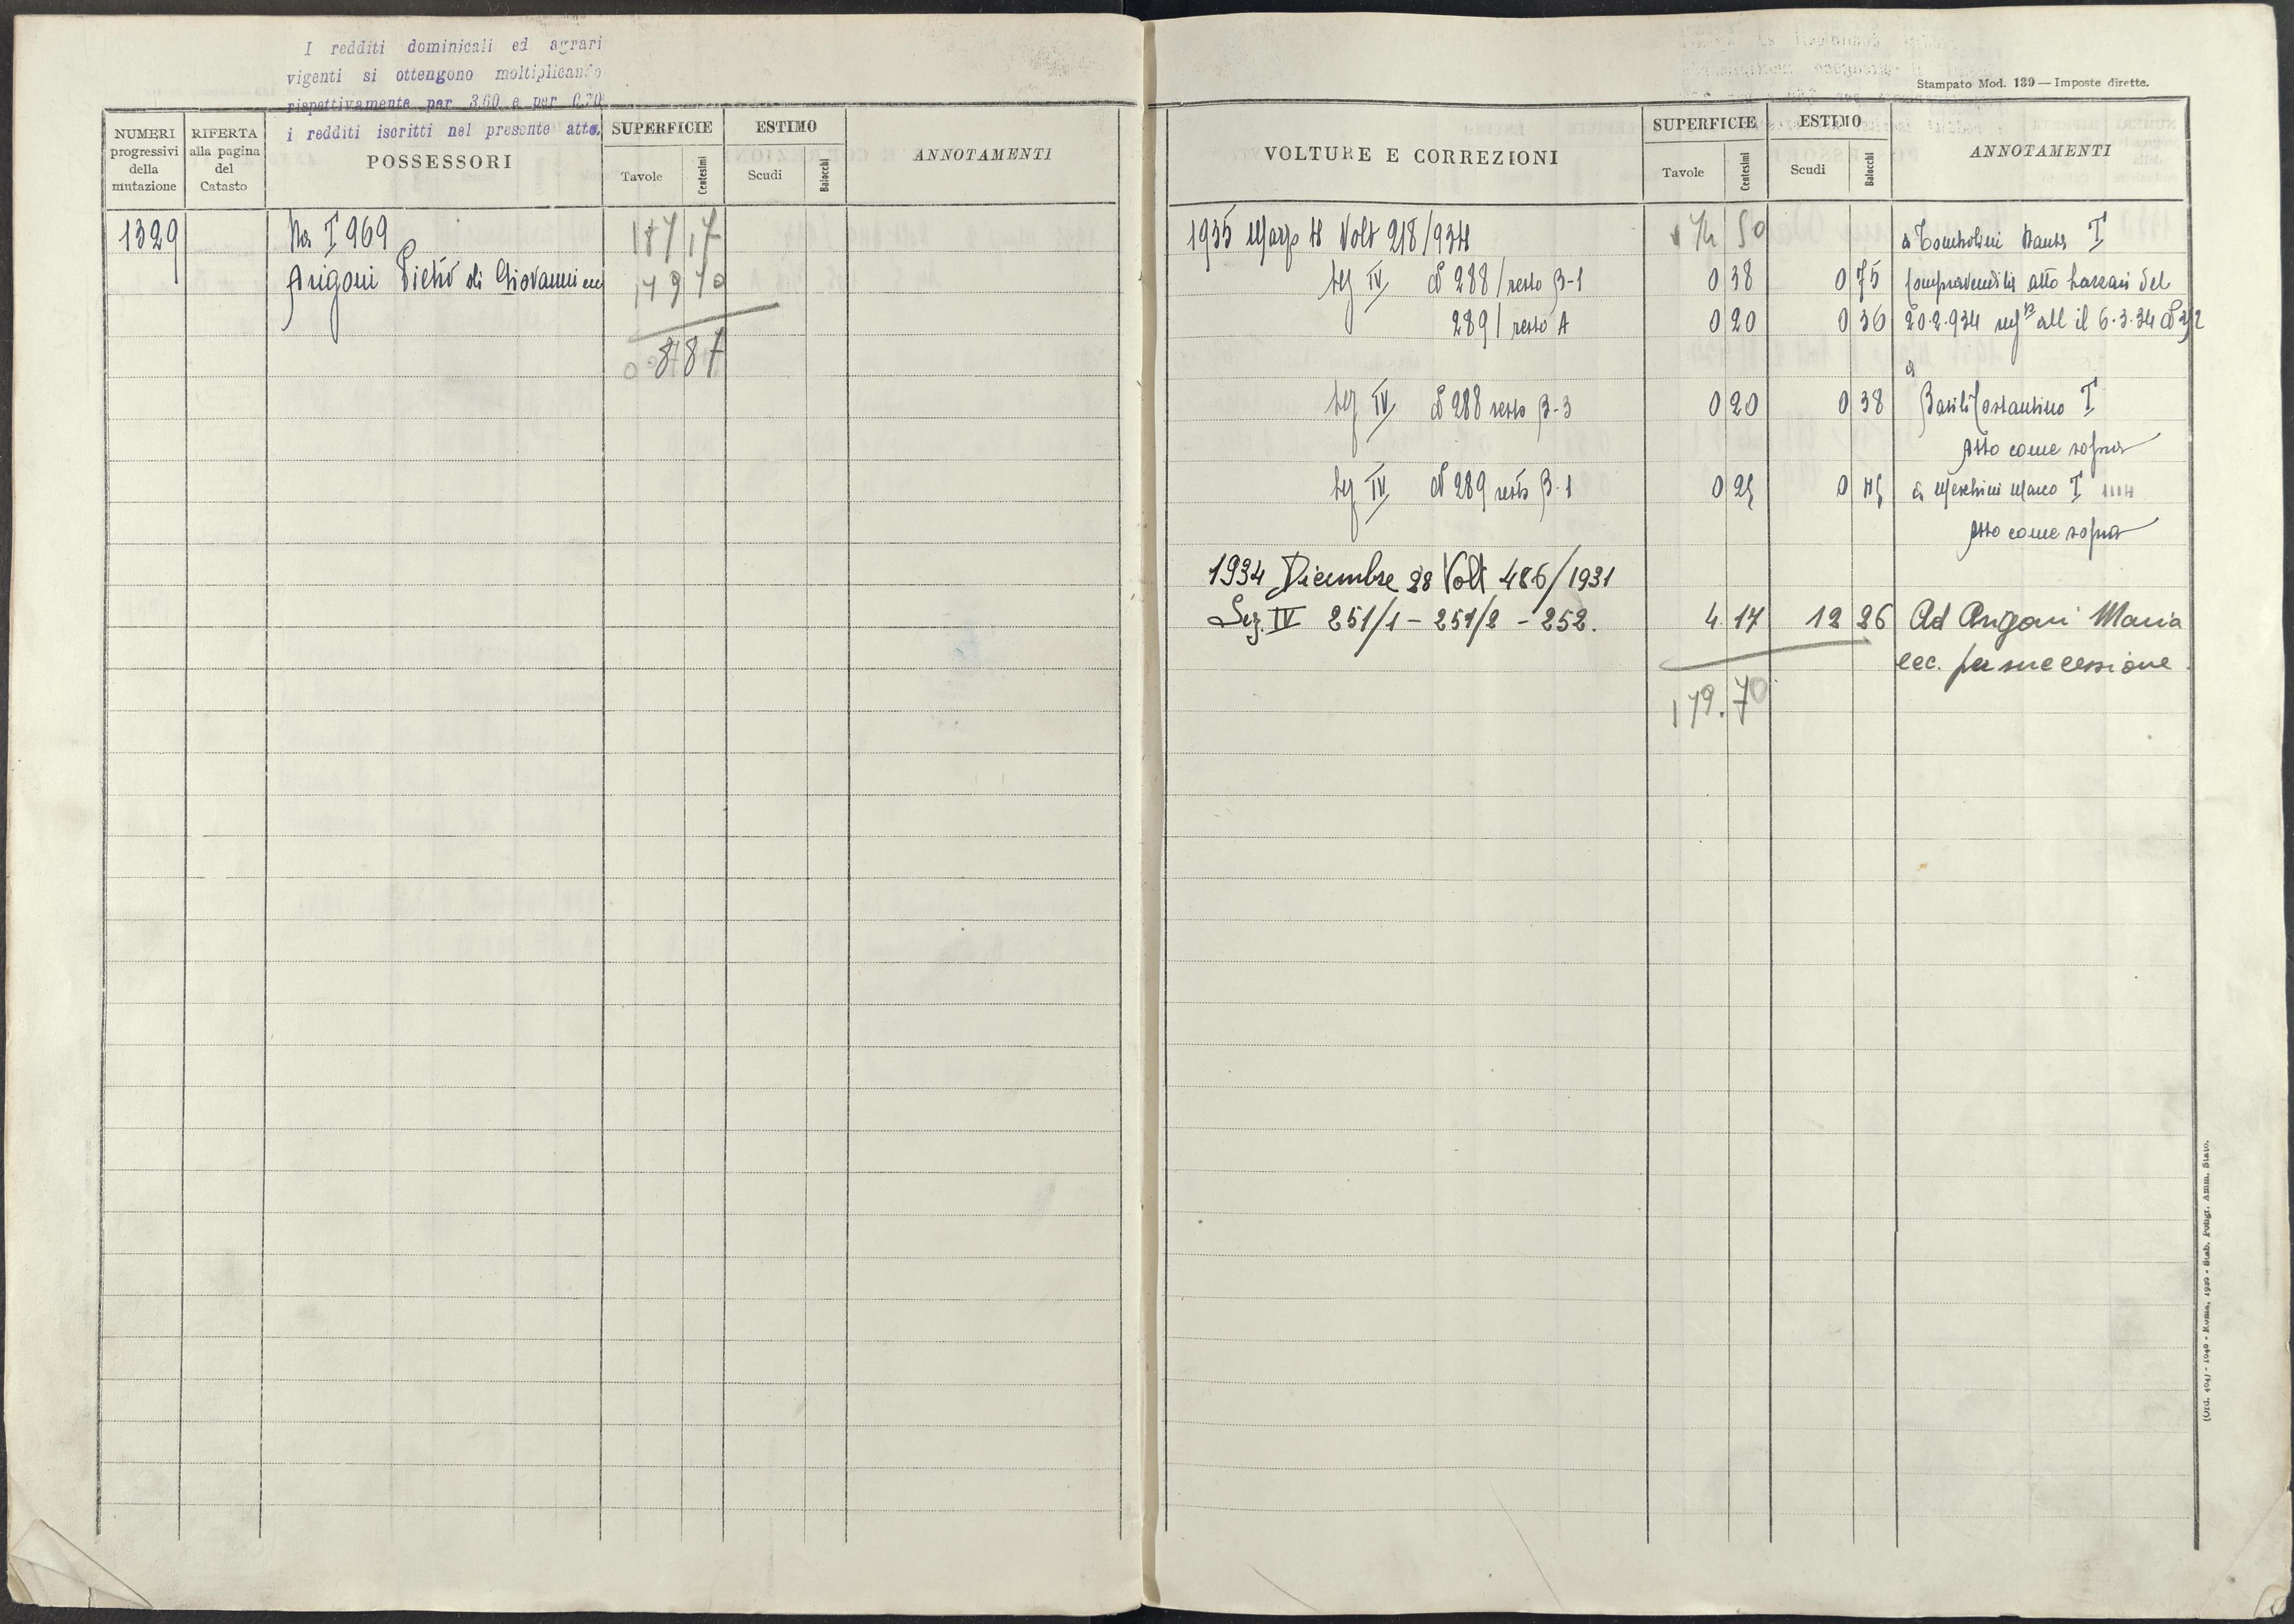 I redditi dominicali ed agrari
vigenti si ottengono moltiplicando
rispettivamente per 3,60 e per 0.20
i redditi iscritti nel presente atto.
NUMERI progressivi della mutazione
RIFERTA alla pagina del Catasto
POSSESSORI
SUPERFICIE
Tavole
Centesimi
ESTIMO
Scudi
Baiocchi
ANNOTAMENTI
1329
Da I 969
187 17
Arigoni Pietro di Giovanni ecc
179 70
8 87
Stampato Mod. 139 — Imposte dirette.
VOLTURE E CORREZIONI
SUPERFICIE
Tavole
Centesimi
ESTIMO
Scudi
Baiocchi
ANNOTAMENTI
1935 Marzo 4 Volt 218/934
174 50
a Tombolini T
Sez IV N 288/resto B-1 0 38 0 75 Compravendita atto del
289/ resto A 0 20 0 36 20.2.934 all il 6.3.34
a
Sez IV N 288 resto B-3 0 20 0 38 Basili Costantino T
Atto come sopra
Sez IV N 289 resto B-1 0 25 0 45 a Meschini Marco T
Atto come sopra
1934 Dicembre 28 Volt 486/1931
Sez. IV 251/1 - 251/2 - 252. 4 17 12 26 Ad Arigoni Maria
ecc. per successione.
179.70
(Ord. 404) - 1940 - Roma, 1929 - Stab. Poligr. Amm. Stato.